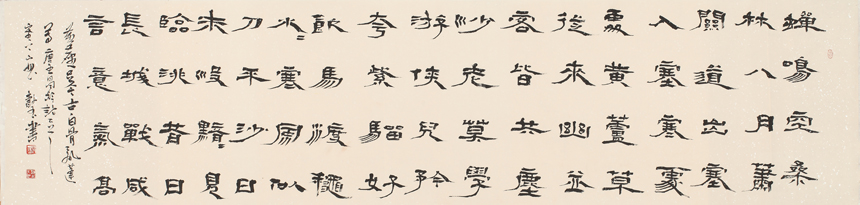 蟬鳴空桑
林八月蕭
關道出塞
入塞寒處
處黃蘆草
從來幽并
客皆共塵
沙老莫學
游俠兒矜
夸紫騮好
飲馬渡龝
水〻寒風似
刀平沙日
未没黯〻見
臨洮昔日
長城戰咸
言意氣高
黃塵足今古白骨亂蓬
蒿